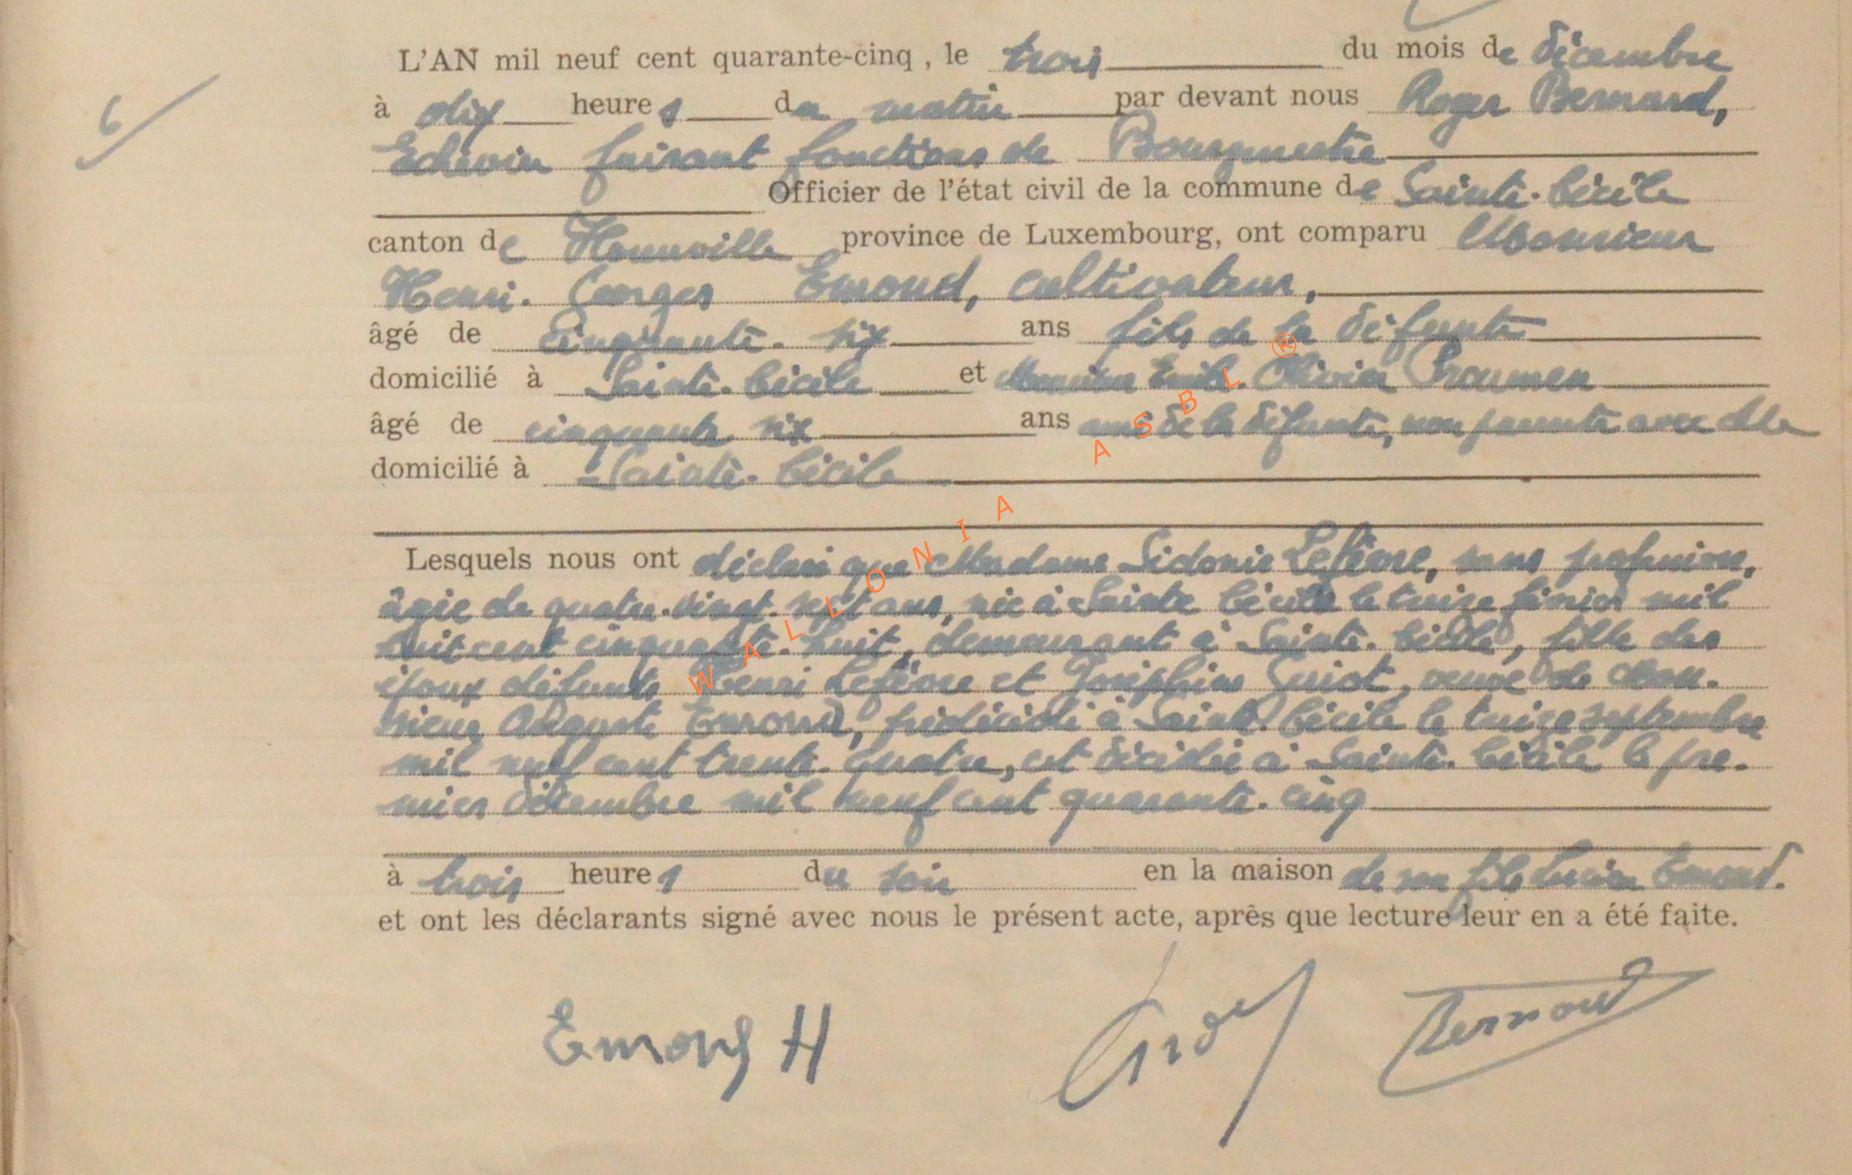 L'AN mil neuf cent quarante-cinq, le trois du mois de décembre
à dix heures du matin par devant nous Roger Bernard,
Echevin faisant fonctions de Bourgmestre
Officier de l'état civil de la commune de Sainte-Cécile
canton de province de Luxembourg, ont comparu Monsieur
Henri-Georges Emond, cultivateur,
âgé de cinquante-six ans fils de la défunte
domicilié à Sainte-Cécile et Monsieur Emile-Olivier
âgé de cinquante six ans ami de la défunte, non parenté avec elle
domicilié à Sainte-Cécile
Lesquels nous ont déclaré que Madame Sidonie Lefèvre, sans profession,
âgée de quatre-vingt-sept ans, née à Sainte Cécile le treize février mil
huit cent cinquante-huit, demeurant à Sainte-Cécile, fille des
époux défunts Henri Lefèvre et Joséphine Guiot, veuve de Mon-
sieur Auguste Emond, prédécédé à Sainte-Cécile le treize septembre
mil neuf cent trente-quatre, est décédée à Sainte-Cécile le pre-
mier décembre mil neuf cent quarante-cinq
à trois heures du soir en la maison de son fils Lucien Emond.
et ont les déclarants signé avec nous le présent acte, après que lecture leur en a été faite.
Emond H Bernard
6
WALLONIA ASBL ®